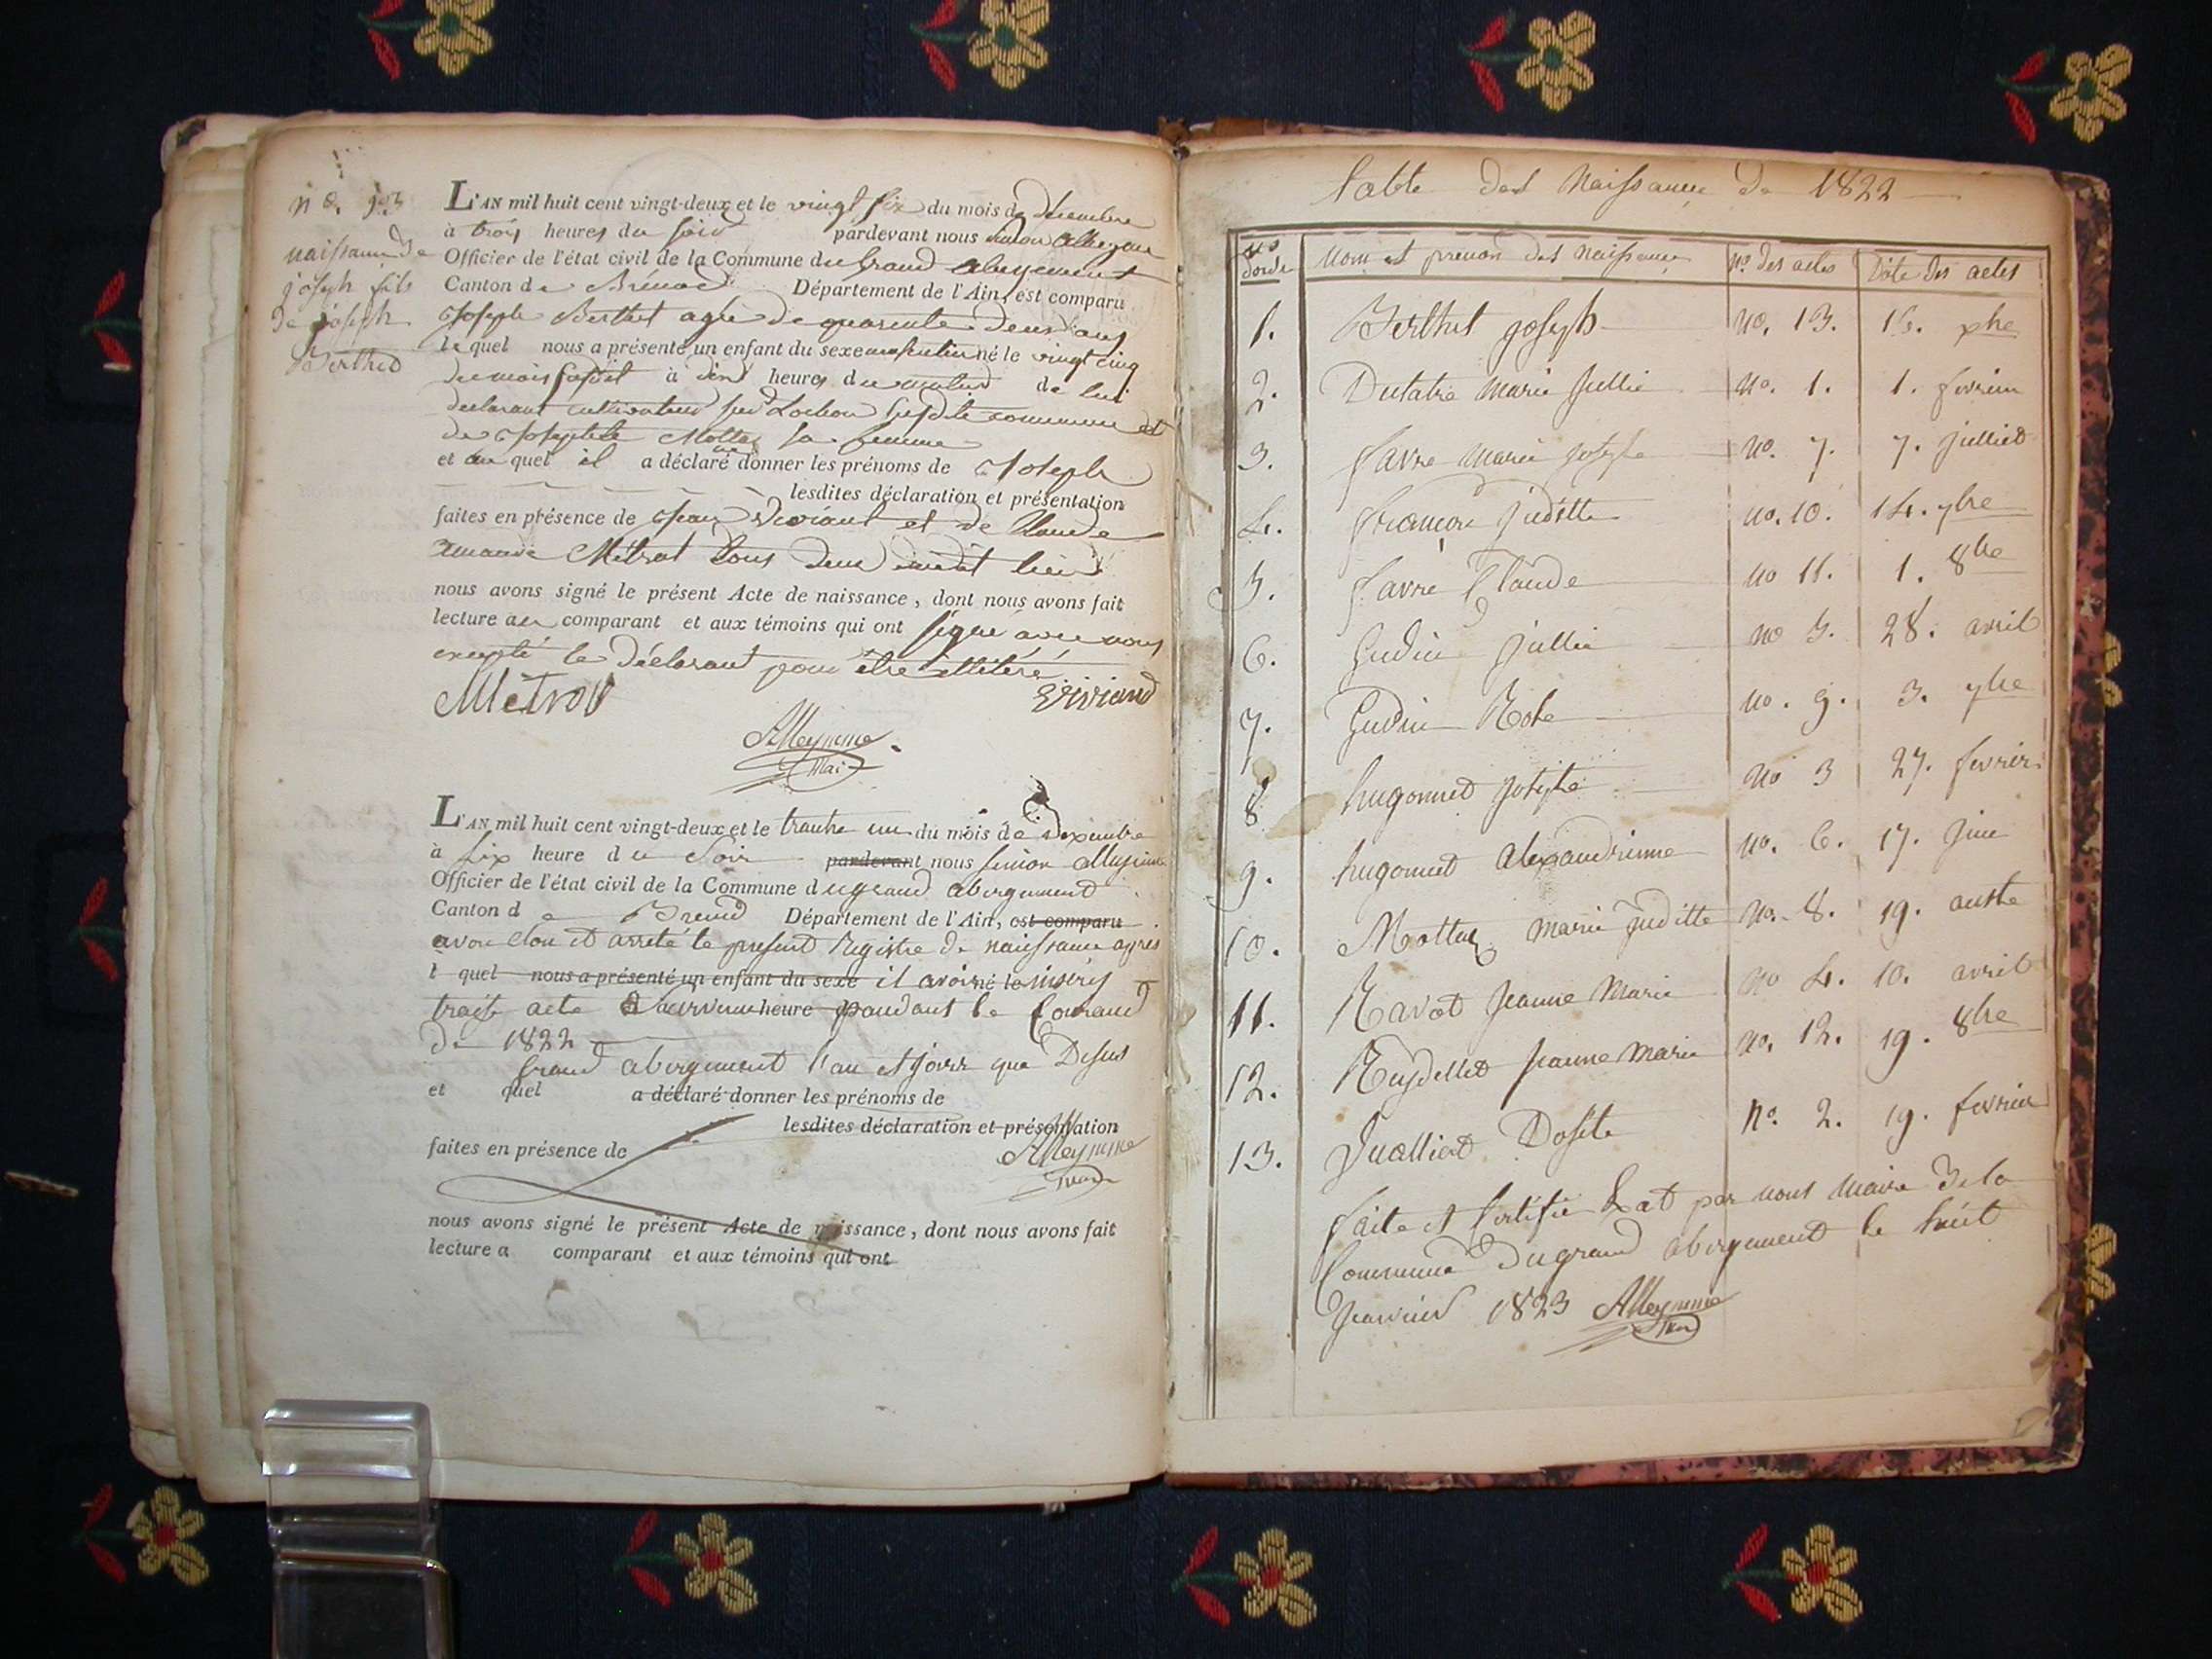 n o. 13
naissance de
joseph fils
de joseph
Berthet
L'AN mil huit cent vingt-deux et le vingt six du mois de décembre
à trois heures du soir pardevant nous Simon Alleyme
Officier de l'état civil de la Commune du Grand abergement
Canton de Brénod Département de l'Ain, est comparu
Joseph Berthet agé de quarente deux ans
lequel nous a présenté un enfant du sexe masculin né le vingt cinq
du mois susdit à heures du matin de lui
declarant cultivateur susdite commune et
de Josephte Mottet sa femme
et auquel il a déclaré donner les prénoms de Joseph
lesdites déclaration et présentation
faites en présence de Jean Viviant et de Claude
Métrat tous deux dudit lieu
nous avons signé le présent Acte de naissance, dont nous avons fait
lecture au comparant et aux témoins qui ont signé avec nous
excepté le déclarant pour être illitéré
Métrat Viviand
Alleyme
L'AN mil huit cent vingt-deux et le trante un du mois de dexembre
à six heure du Soir pardevant nous Simon Alleyme
Officier de l'état civil de la Commune dugrand abergement
Canton de Brenod Département de l'Ain, est comparu
avon Clou et arreté le present Registre de naissance apres
l quel nous a présenté un enfant du sexe il avoir né le inserés
traise acte heure pandant le Courand
de 1822
Grand abergement l'an et jour que Desus
et quel a déclaré donner les prénoms de
lesdites déclaration et présentation
faites en présence de Alleyme
nous avons signé le présent Acte de naissance, dont nous avons fait
lecture a comparant et aux témoins qui ont
table des Naissance de 1822
no dorde Nom et prenon des Naissance no des actes Date des actes
1. Berthet joseph no. 13. xbre
2. Dutatre Marie Jullie no. 1. 1. fevrier
3. favre Marie josephe no. 7. 7. julliet
4. françoi juditte no. 10. 14. 7bre
5. favre Claude no 11. 1. 8bre
6. Gudin jullie no 5. 28. avril
7. Gudin Rose no. 9. 3. 7bre
8 hugonnet josephe no 3 27. fevrier
9. hugonnet alexandrinne no. 6. 17. juin
10. Mottet marie juditte no. 8. 19. auste
11. Ravot jeanne Marie no 4. 10. avril
12. Reydellet jeanne Marie no. 12. 19. 8bre
13. Vuilliet Dosite no. 2. 19. fevrier
faite et Certifié Exat par nous Maire de la
Commune dugrand abergement le huit
Janvier 1823 Alleyme